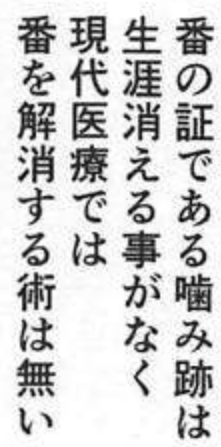 番の証である噛み跡は
生涯消える事がなく
現代医療では
番を解消する術は無い